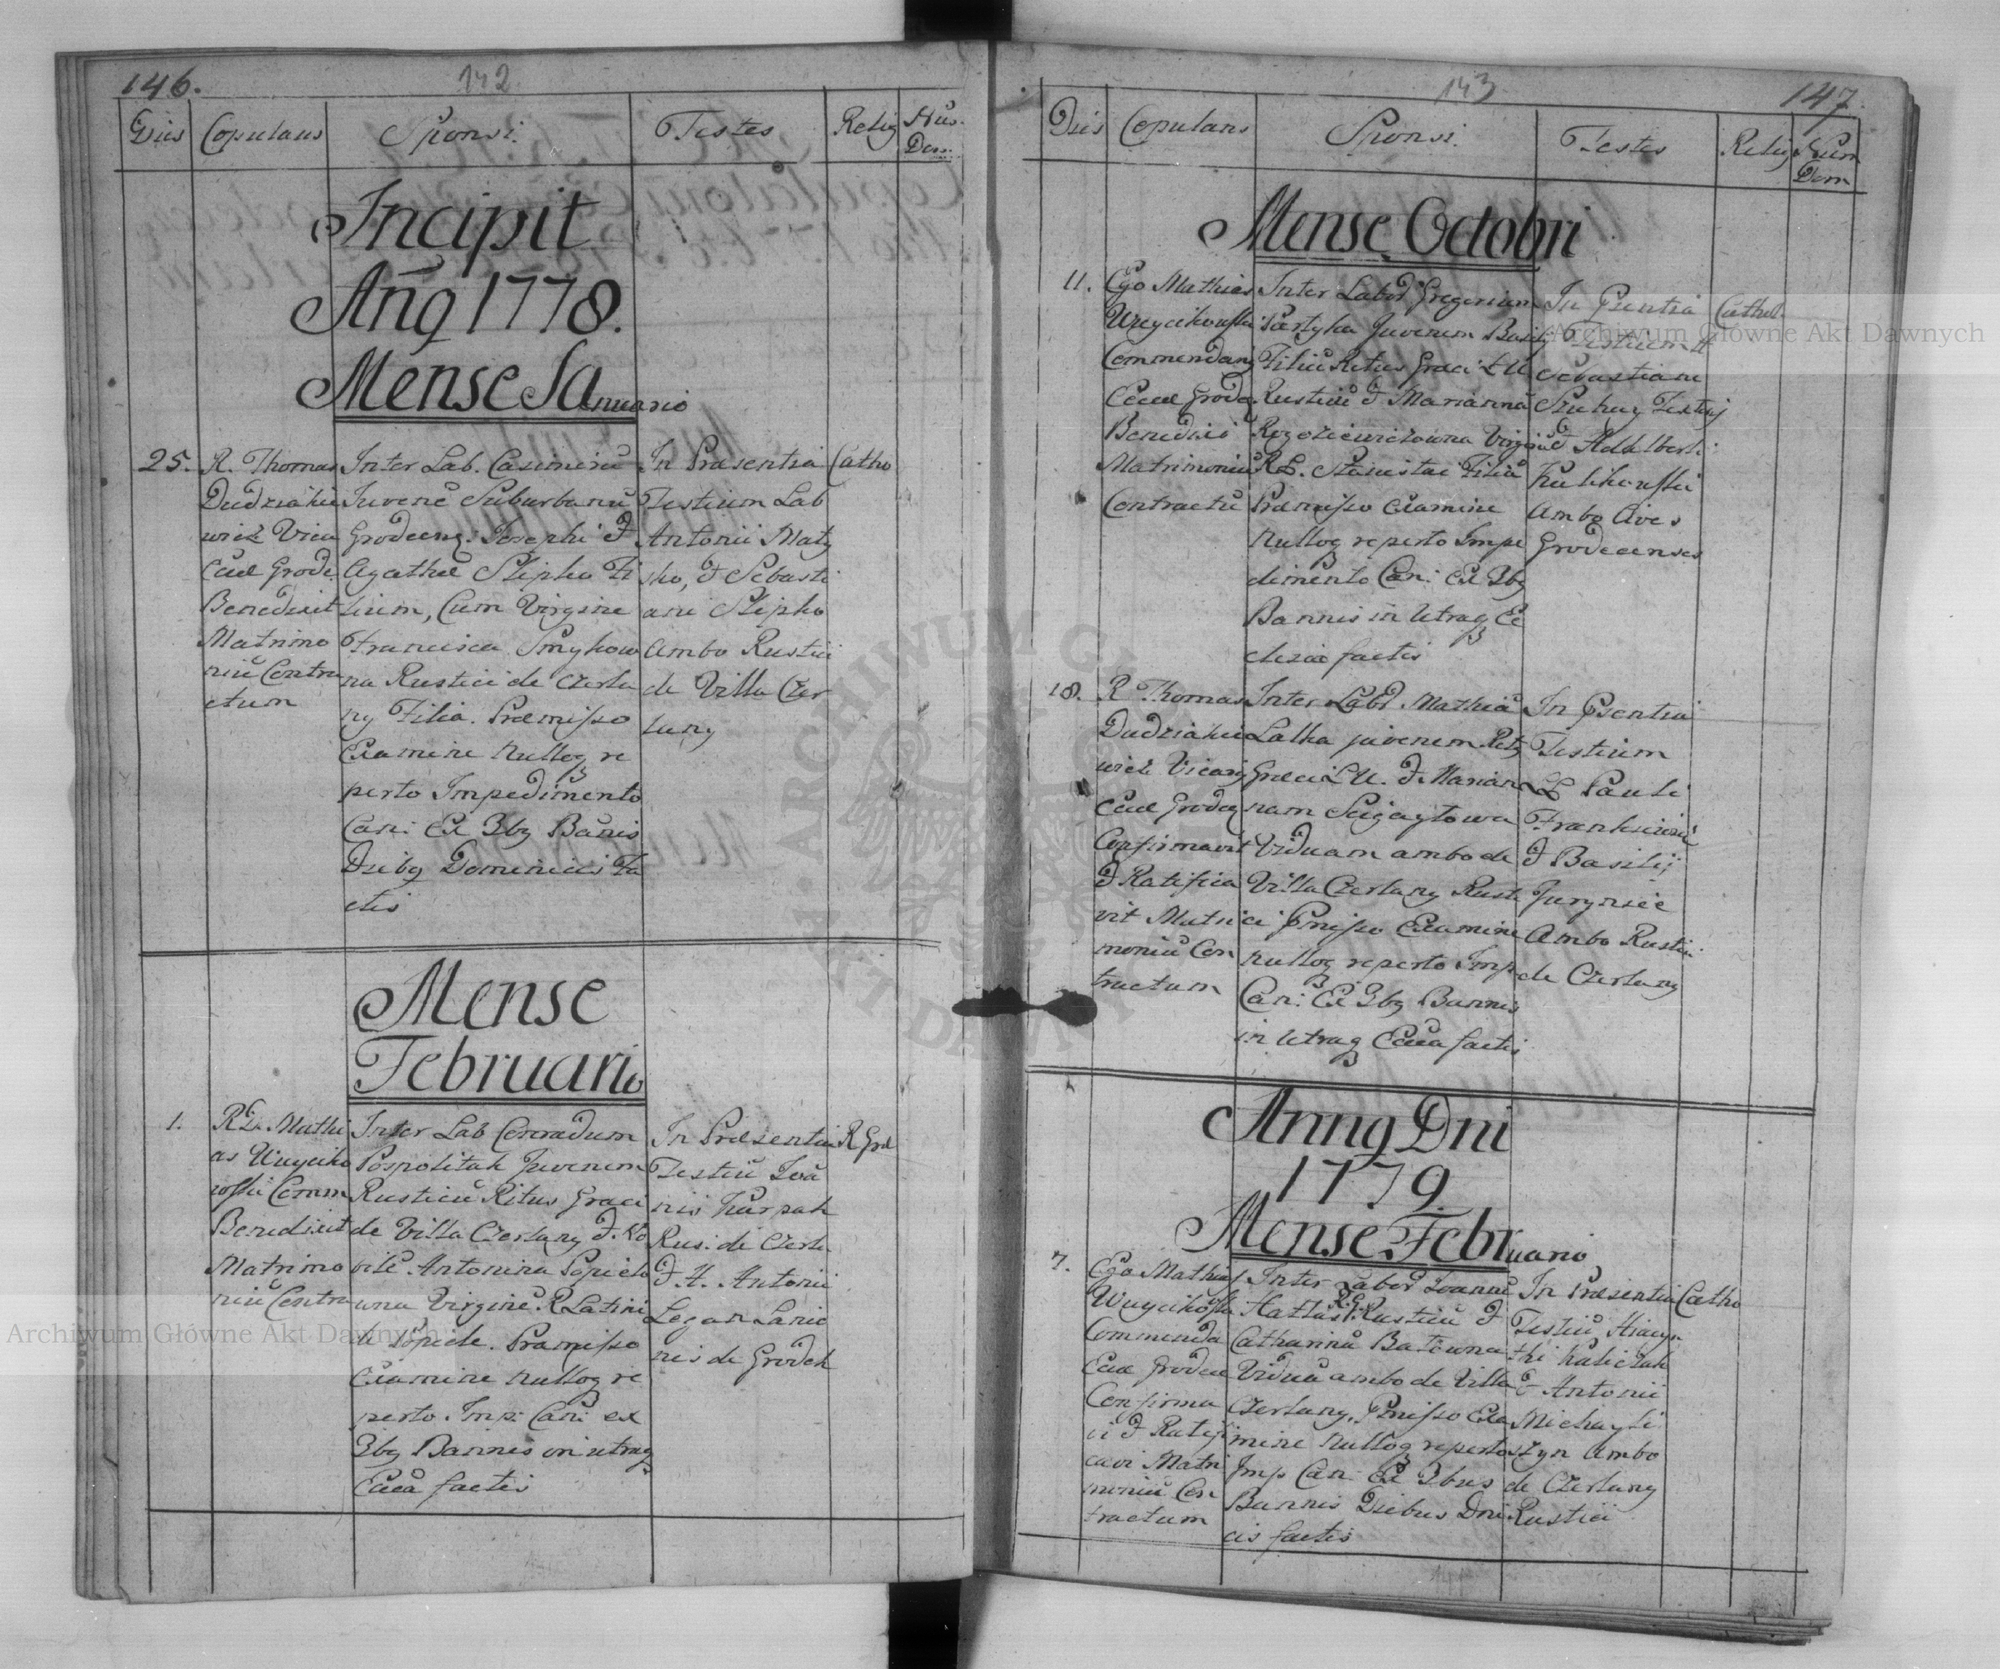 146.
142
Dies Copulans Sponsi Testes Relig Nus. Dom.
Incipit
Anno 1778.
Mense Januario
25.
R. Thomas
Dudziakie
wicz Vica
Eccl Grode
Benedixit
Matrimo
niũ Contra
ctum
Inter Lab. Casimirũ
Juvenẽ Suburbanũ
Grodecens. Josephi &
Agathæ Slipko Fi
lium, Cum Virgine
Francisca Smykow
na Rustici de Czerla
ny Filia. Præmisso
Examine Nulloq re
perto Impedimento
Can: Ex 3bq Banis
Diebq Dominicis Fa
ctis
In Præsentia
Testium Lab
Antonii Maty
sko, & Sebasti
ani Slipko
Ambo Rustici
de Villa Czer
lany
Catho
Mense
Februario
1.
R. Mathi
as Wuyciko
wski Comm
Benedixit
Matrimo
niũ Contra
Inter Lab Conradum
Pospolitak Juvenem
Rusticũ Ritus Græci
de Villa Czerlany & No
bilẽ Antonina Popielo
wna Virginẽ R Latini
de Popiele. Præmisso
Examine Nulloq re
perto Imp: Can: ex
3bq Bannis in utraq
Eccla factis
In Præsentia
Testiũ Joã
nis Kurpak
Rus: de Czerla
& A. Antonii
Legan Lanio
nis de Grodek
R Græ
143
147.
Dies Copulans Sponsi. Testes Relig Num Dom
Mense Octobri
11.
Ego Mathias
Wuycikowski
Commendarij
Ecclæ Grodeq
Benedixi
Matrimoniũ
Contractũ
Inter Labor Gregorium
Partyka Juvenem Basilij
Filiũ Ritus Græci L U
Rusticũ & Mariannã
Virginẽ
RL. Stanislai Filiã
Præmisso Examine
Nulloq reperto Impe
dimento Can: Ex 3bq
Bannis in Utraq Ec
clesia factis
In Psentia
Testium
Sebastiani
& Adalberti
Kulikowski
Ambo Cives
Grodecenses
Cathol.
18.
R Thomas
Dudziakie
wicz Vicarij
Ecclæ Grodeq
Confirmavit
& Ratifica
vit Matri
moniũ Con
tractum
Inter Labd Mathiã
Lalka juvenem Ritq
Græci L U. & Marian
nam
Viduam ambo de
Villa Czerlany Rusti
ci Pmisso Examine
Nulloq reperto Imp
Can: Ex 3bq Bannis
in Utraq Eccla factis
In Psentia
Testium
LL Pauli
& Basilij
Ambo Rustici
de Czerlany
Anno Dni
1779.
Mense Februario
7.
Ego Mathias
Wuycikowski
Commenda
Eccl Grodec
Confirma
vi & Ratifi
cavi Matri
moniũ Con
tractum
Inter Labor Joannẽ
Rusticũ &
Catharinã Batowna
Viduã ambo de Villa
Czerlany. Pmisso Exa
mine Nulloq reperto
Imp Can Ex 3bus
Bannis Diebus Dni
cis factis
In Præsentia
Testiũ Hiacyn
thi Kuliczak
& Antonii
Michayli
szyn ambo
de Czerlany
Rustici
Catho
Archiwum Główne Akt Dawnych
Archiwum Główne Akt Dawnych